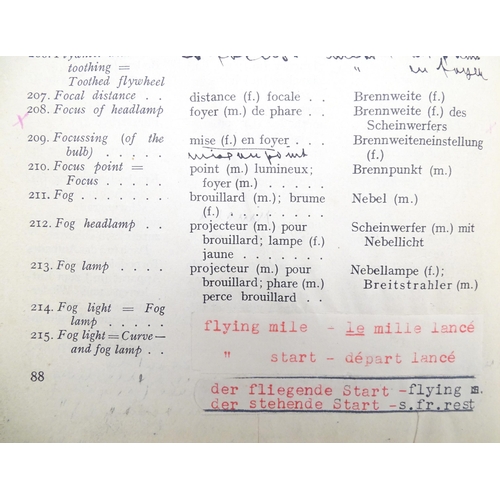 toothing =
Toothed flywheel
in foyer
207. Focal distance . . distance (f.) focale . . Brennweite (f.)
208. Focus of headlamp foyer (m.) de phare . . Brennweite (f.) des
Scheinwerfers
209. Focussing (of the mise (f.) en foyer . . . Brennweiteneinstellung
bulb) . . . . . mise au point (f.)
210. Focus point = point (m.) lumineux; Brennpunkt (m.)
Focus . . . . . foyer (m.) . . . . .
211. Fog . . . . . . brouillard (m.); brume Nebel (m.)
(f.) . . . . . . .
212. Fog headlamp . . projecteur (m.) pour Scheinwerfer (m.) mit
brouillard; lampe (f.) Nebellicht
jaune . . . . . .
213. Fog lamp . . . . projecteur (m.) pour Nebellampe (f.);
brouillard; phare (m.) Breitstrahler (m.)
perce brouillard . .
214. Fog light = Fog
lamp . . . . .
215. Fog light = Curve—
and fog lamp . .
flying mile - le mille lancé
" start - départ lancé
der fliegende Start -flying s.
der stehende Start -s.fr.rest
88